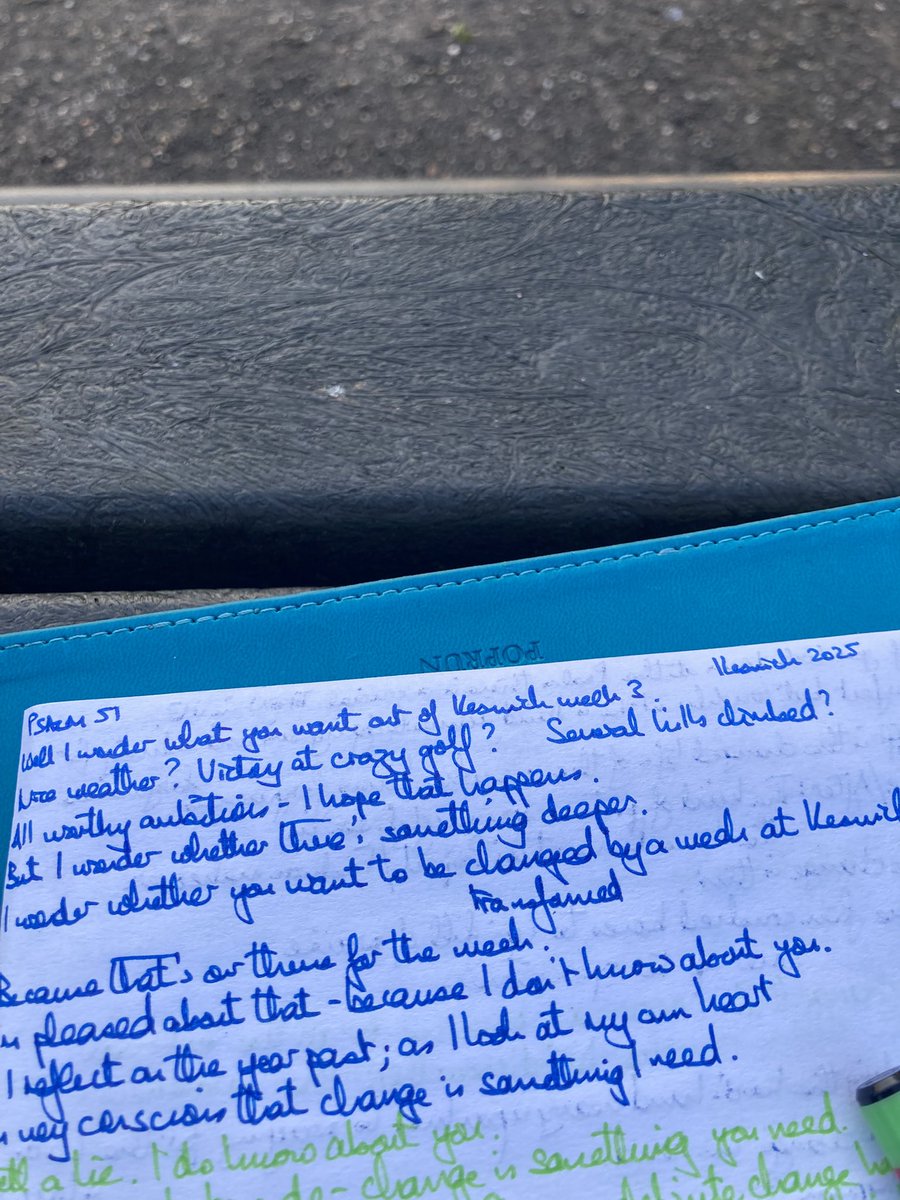 POPRUN
PSALM 51
Keswick 2025
Well I wonder what you want out of Keswick week 3.
Nice weather? Victory at crazy golf? Several hills climbed?
All worthy ambitions - I hope that happens.
But I wonder whether there's something deeper.
I wonder whether you want to be changed by a week at Keswick
Transformed
Because that's our theme for the week.
pleased about that - because I don't know about you.
I reflect on the year past; as I look at my own heart
very conscious that change is something I need.
a lie. I do know about you.
change is something you need.
change